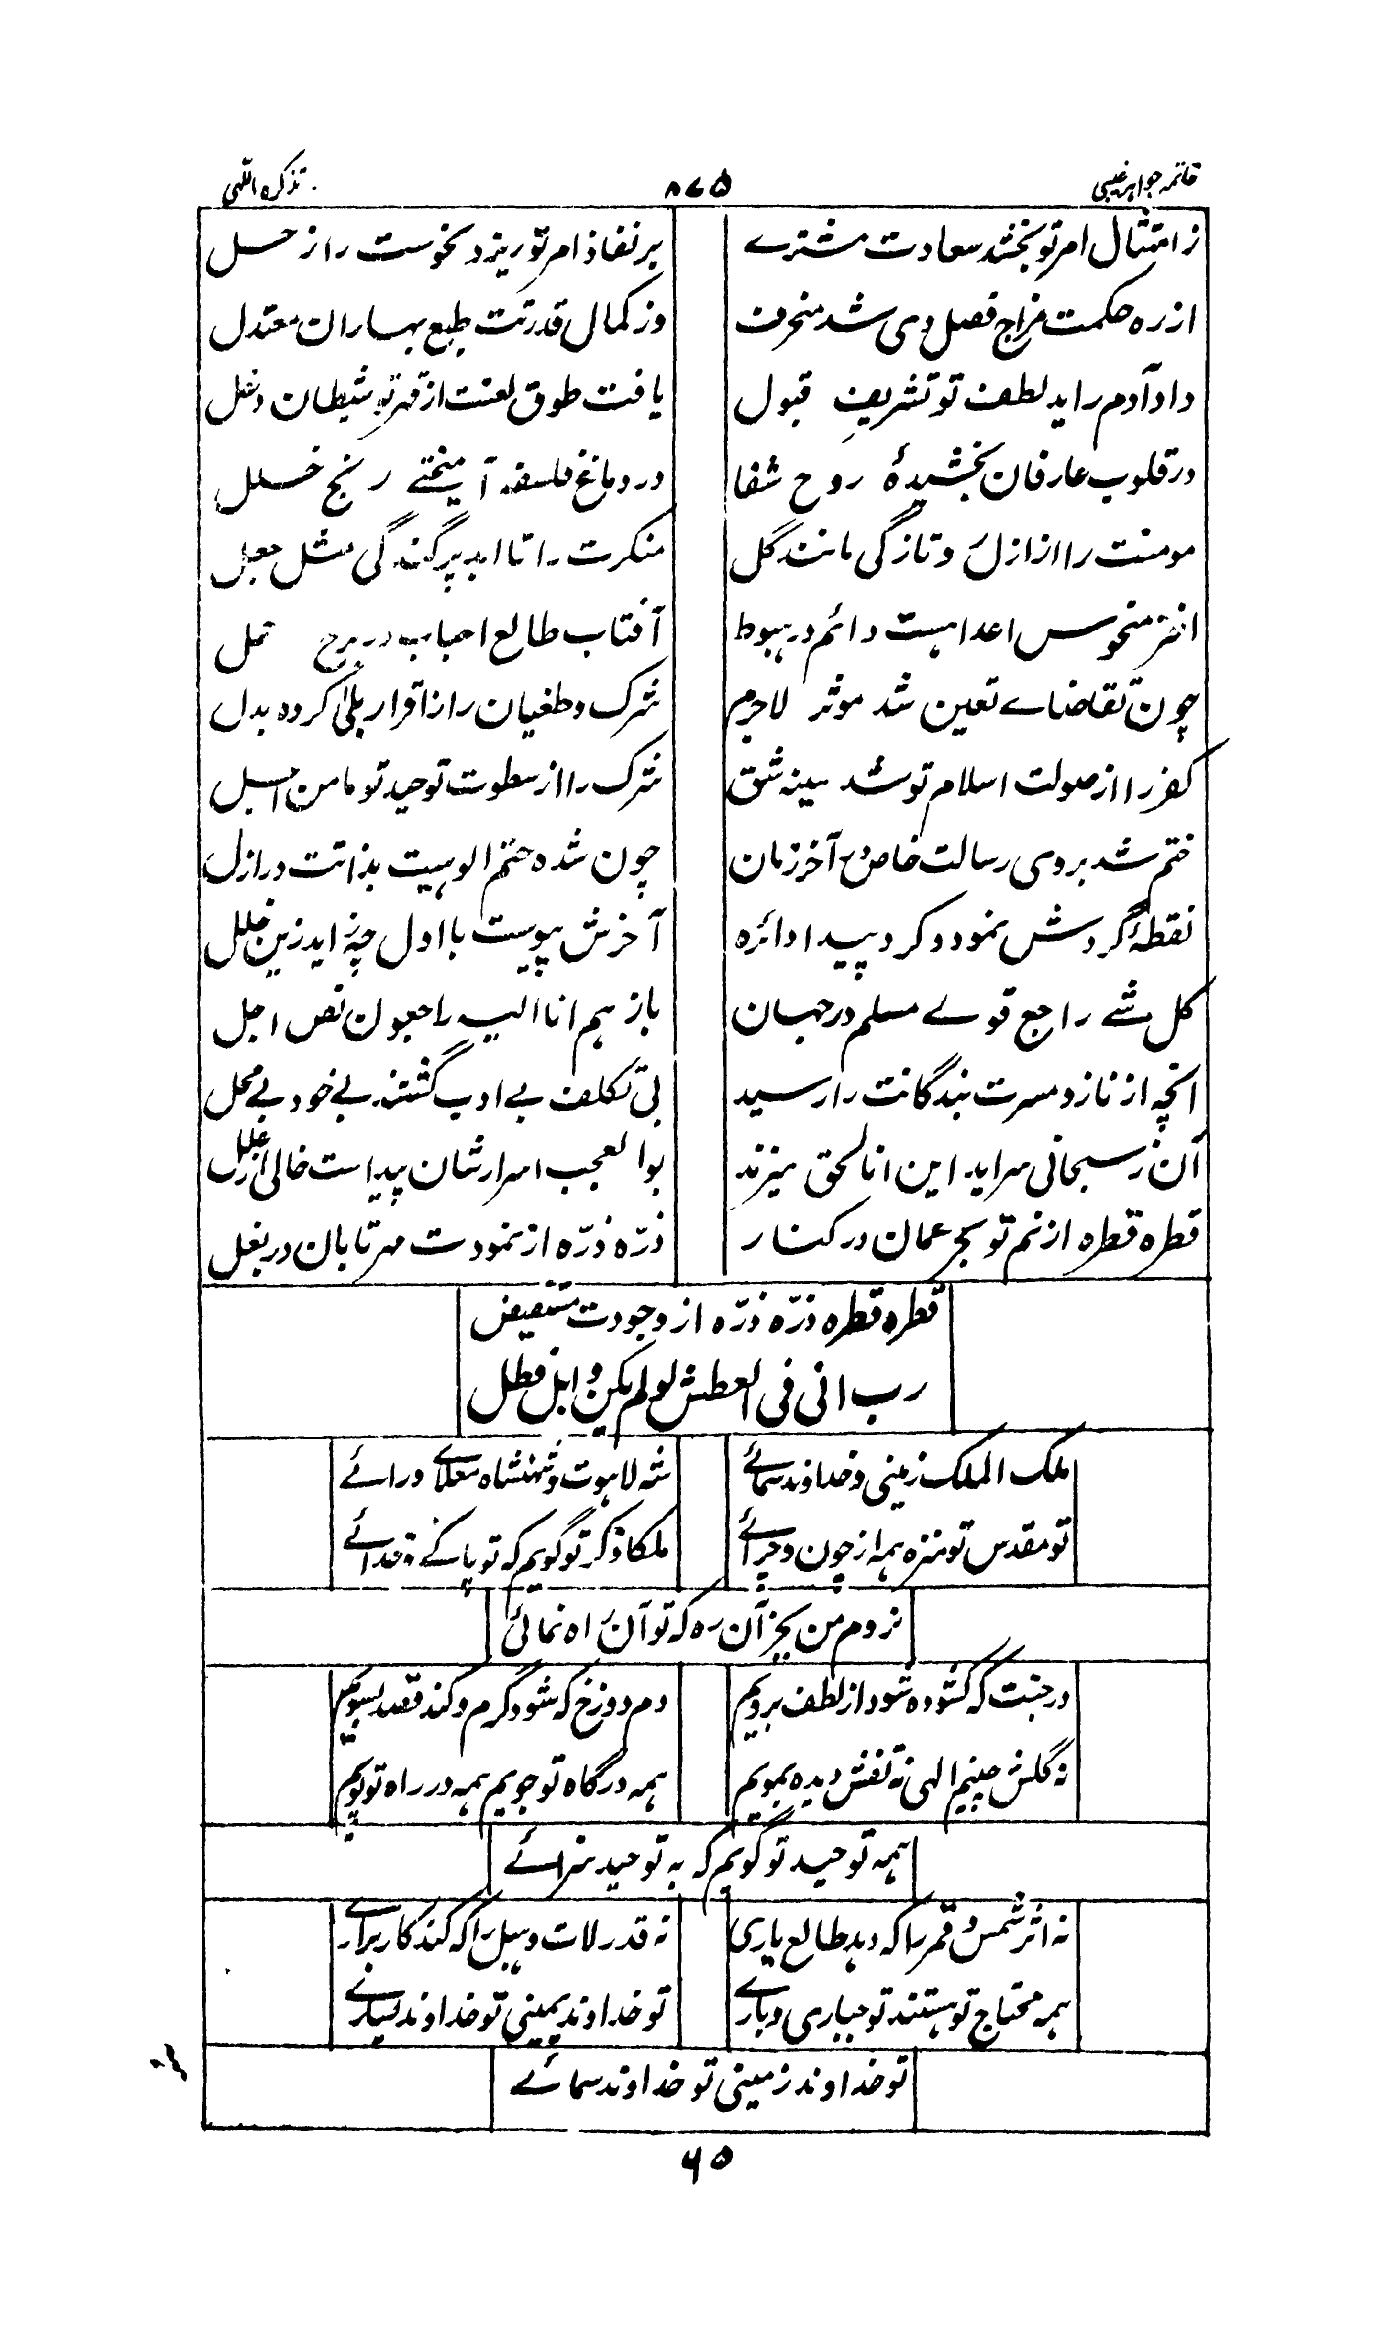 خاتمہ جواہر غیبی ۸۷۵ تذکرہ اللہی
ز امتثال امر تو بخشند سعادت مشترے بر نفاذ امر تو ریزد نحوست را زحل
از رہ حکمت مزاج فصل دی شد منحرف وز کمال قدرتت طبع بہاران معتدل
داد آدم را ید لطف تو تشریفِ قبول یافت طوق لعنت از قہر تو شیطان دغل
در قلوب عارفان بخشیدۂ روح شفا در دماغ فلسفہ آمیختے رنج خلل
مومنت را از ازل و تازگی مانند گل منکرت را تا ابد پر گندگی مثل جعل
اختر منحوس اعدا ہست دائم در ہبوط آفتاب طالع احباب در برج حمل
چون تقاضاے تعین شد موثر لاجرم شرک و طغیان را ز اقرار بلیٰ کردہ بدل
کفر را از صولت اسلام تو شد سینہ شق شرک را از سطوت توحید تو مامن اسبل
ختم شد بر وی رسالت خاص آخر زمان چون شدہ ختم الوہیت بذاتت در ازل
نقطۂ گردش نمود و کرد پیدا دائرہ آخرش پیوست با اول چہ زاید زین خلل
کل شے راجع قولے مسلم در جہان باز ہم انا الیہ راجعون نص اجل
انچہ از ناز و مسرت بندگانت را رسید بی تکلف بے ادب گشتند بے خود بے محل
آن ز سبحانی سراید این انا الحق میزند بوالعجب اسرار شان پیداست خالی از علل
قطرہ قطرہ از نم تو بحر عمان در کنار ذرّہ ذرّہ از نمودت مہر تابان در بغل
قطرہ قطرہ ذرّہ ذرّہ از وجودت مستفیض
رب انی فی العطش لو لم یکن وابل فطل
ملک الملک زمینی و خداوند سمائے شہ لاہوت و شہنشاہ معلاے ورائے
تو مقدس تو منزہ ہمہ از چون و چرائے ملکا ذکر تو گویم کہ تو پاکے و خدائے
نروم من بجز آن رہ کہ تو آن راہ نمائی
در جنت کہ کشودہ شود از لطف برویم دم دوزخ کہ شود گرم و کند قصد بسویم
نہ گلش چینم الہی نہ تفش دیدہ بمویم ہمہ درگاہ تو جویم ہمہ در راہ تو پویم
ہمہ توحید تو گویم کہ بہ توحید سزائے
نہ اثر شمس و قمر را کہ دہد طالع یاری نہ قدر لات و ہبل را کہ کند کار برارے
ہمہ محتاج تو ہستند تو جباری و بارے تو خداوند یمینی تو خداوند یسارے
تو خداوند زمینی تو خداوند سمائے
۶۵